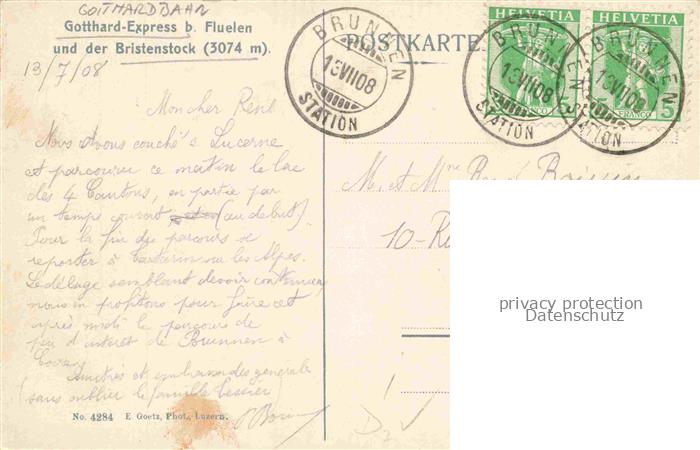 GOTTHARDBAHN
Gotthard-Express b. Fluelen
und der Bristenstock (3074 m).
13/7/08
POSTKARTE.
BRUNNEN
13 VII 08
STATION
HELVETIA HELVETIA
BRUNNEN
13 VII 08
STATION
BRUNNEN
13 VII 08
FRANCO
FRANCO 5
Mon cher René
Nous avons couché à Lucerne
et parcouru ce matin le lac
des 4 Cantons, en partie par
un temps couvert (au début).
Pour la fin du parcours se
reporter à Tartarin sur les Alpes.
Le déluge semblant devoir continuer,
nous en profitons pour faire cet
après midi le parcours de
peu d'intérêt de Brunnen à
Amitiés et embrassades générales
(sans oublier la famille
M. et Mme René
10 - R
privacy protection
Datenschutz
No. 4284 E. Goetz, Phot., Luzern.